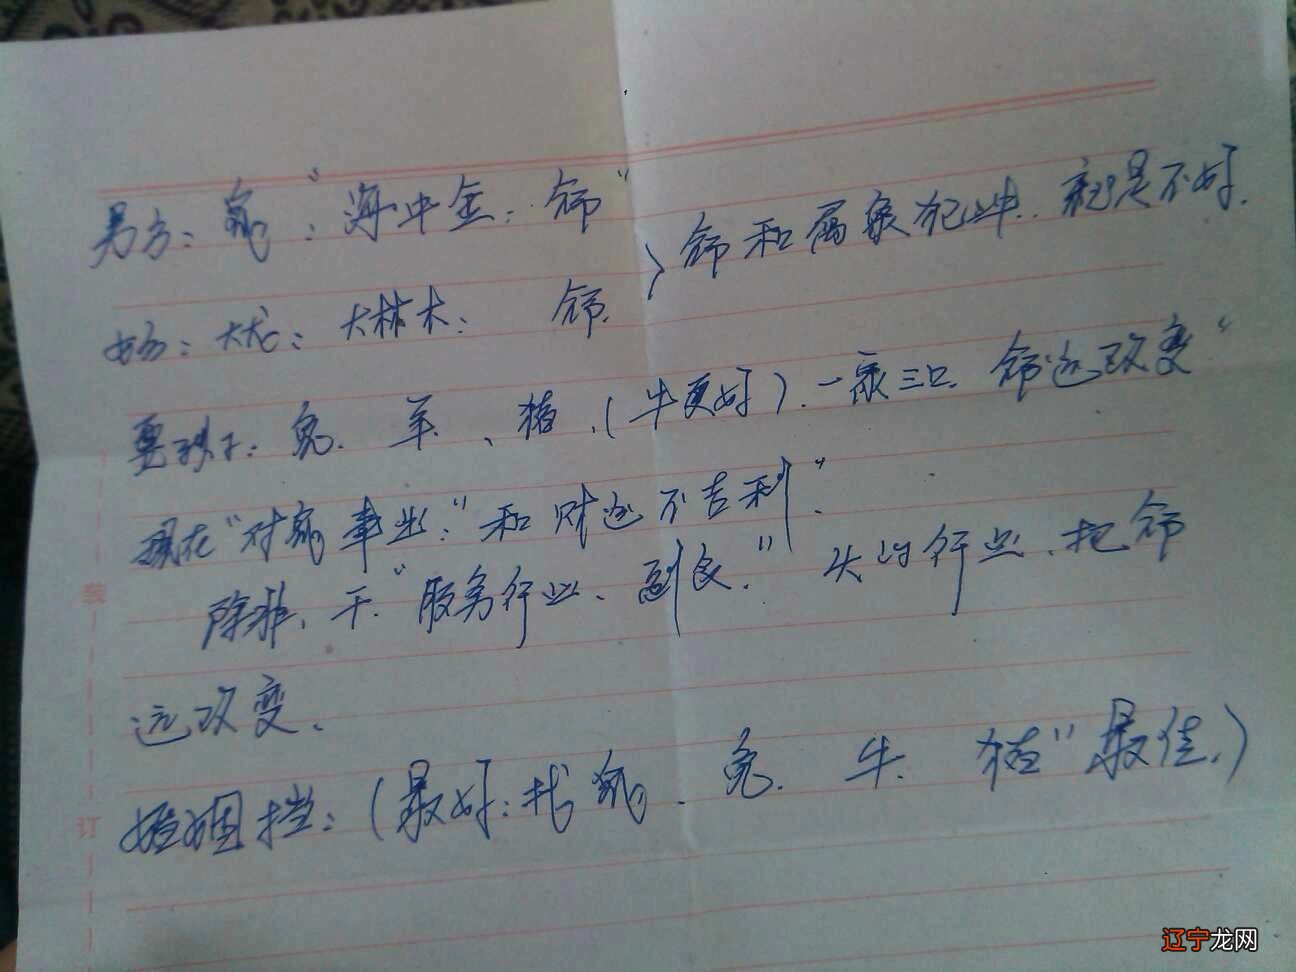 男方：鼠：“海中金：命”
女方：大龙：大林木：命.
〉命和属象犯冲．就是不好．
要孩子：兔．羊、猪、（牛更好）．一家三口．命运改变“
现在“对鼠事业：”和财运不吉利”．
除非、干．“服务行业、副食．”火的行业、把命
运改变、
婚姻挡：（最好：找鼠、兔．牛．猪”最佳．）
装
订
辽宁龙网